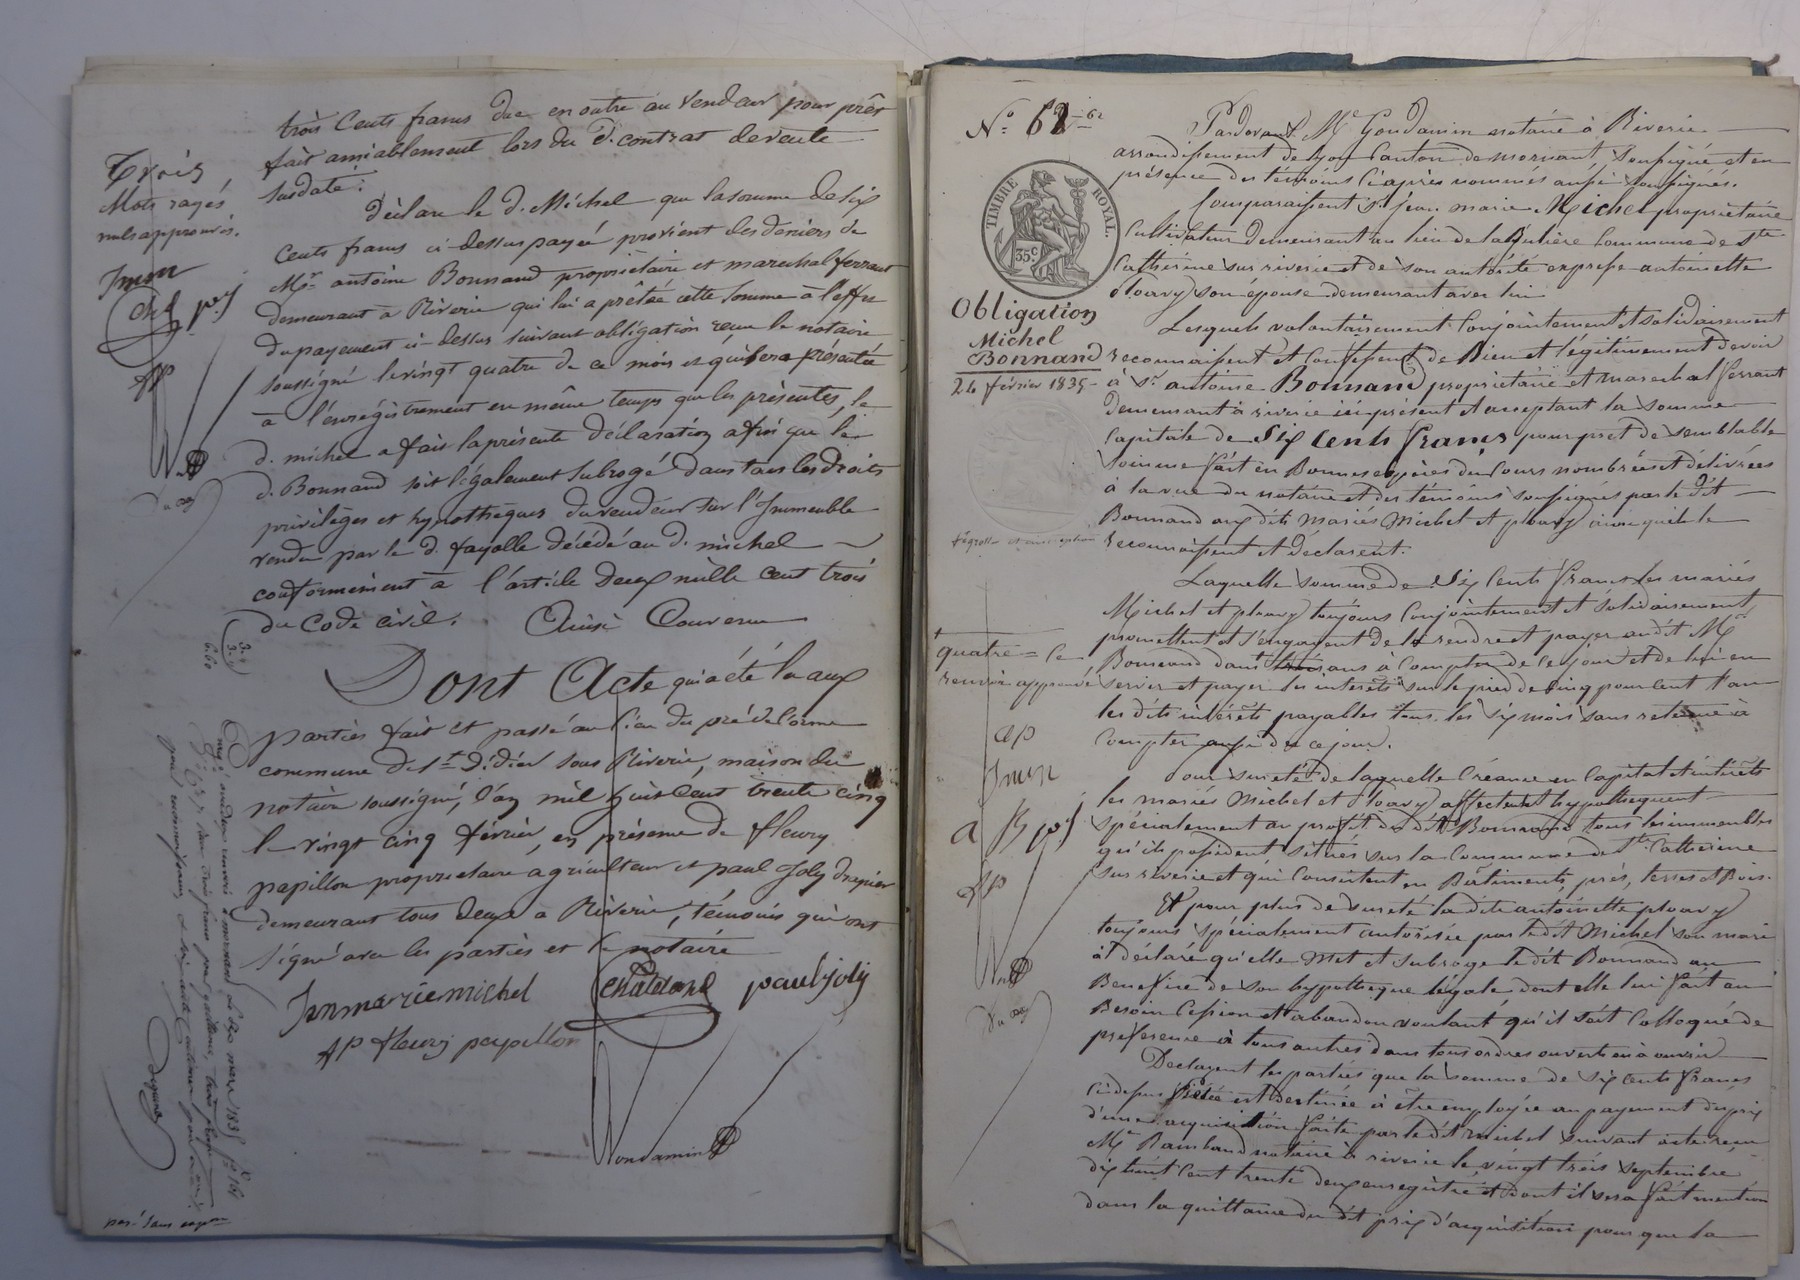 trois Cents francs due en outre au vendeur pour prêt
fait amiablement lors du d. contrat de vente
susdaté.
Déclare le d. Michel que la somme de six
cents francs ci-dessus payée provient des deniers de
Mr. antoine Bonnand propriétaire et marechal ferrant
demeurant à Riverie qui lui a prêtée cette somme à l'effet
du payement ci-dessus suivant obligation reçue le notaire
soussigné le vingt quatre de ce mois et qui sera présentée
à l'enrégistrement en même temps que les présentes, le
d. michel a fait la présente déclaration afin que le
d. Bonnand soit légalement subrogé dans tous les droits
privilèges et hypothèques du vendeur sur l'Immeuble
vendu par le d. fayolle décédé au d. michel
conformément à l'article deux mille cent trois
du Code civil. Ainsi Convenu
Dont Acte qui a été lu aux
parties fait et passé au lieu du pré de l'orme
commune de St. Didier sous Riverie, maison du
notaire soussigné, l'an mil huit cent trente cinq
le vingt cinq février, en présence de fleury
papillon propriétaire agriculteur et paul Joly drapier
demeurant tous deux à Riverie, témoins qui ont
signé avec les parties et le notaire
Jnmarie michel Chaldond paul joly
fleury papillon
Gondamin
Trois
Mots rayés
nuls approuvés.
Jmm
pj
fp
3.
3.
6.60
mars 1835
trois francs
N° 62 62
TIMBRE ROYAL.
35c
Obligation
Michel
Bonnand
24 février 1835
Pardevant Me Gondamin notaire à Riverie
arrondissement de Lyon Canton de mornant, soussigné et en
présence des témoins ci après nommés aussi soussignés.
Comparaissent Sr. jean marie Michel propriétaire
Cultivateur demeurant au lieu de la Commune de Ste.
Catherine sur riverie et de son autorité expresse antoinette
plouvy son épouse demeurant avec lui
Lesquels volontairement Conjointement et solidairement
reconnaissent et Confessent de Bien et légitimement devoir
à Sr. antoine Bonnand propriétaire et marechal ferrant
demeurant à riverie ici présent et acceptant la somme
Capitale de Six Cents francs pour pret de semblable
somme fait en Bonnes espèces du Cours nombrées et délivrées
à la vue du notaire et des témoins soussignés par le dit
Bonnand aux dits mariés Michel et plouvy ainsi qu'ils le
reconnaissent et déclarent.
Laquelle somme de Six Cents francs les mariés
Michel et plouvy toujours Conjointement et solidairement
promettent et s'engagent de la rendre et payer au dit Mr.
Bonnand dans trois ans à Compter de ce jour et de lui en
servir et payer les intérêts sur le pied de Cinq pour Cent l'an
les dits intérêts payables tous les six mois sans retenue à
Compter aussi de ce jour.
Pour sureté de laquelle Créance en Capital et intérêts
les mariés Michel et Plouvy affectent et hypothequent
spécialement au profit du dit Bonnand tous les immeubles
qu'ils possèdent situés sur la Commune de Ste Catherine
sur riverie et qui Consistent en Bâtiments, prés, terres et Bois.
Et pour plus de sureté la dite antoinette plouvy
toujours spécialement autorisée par le dit Michel son mari
a déclaré qu'elle Met et subroge le dit Bonnand au
Bénéfice de son hypotheque légale dont elle lui fait au
Besoin Cession et abandon voulant qu'il soit Colloqué de
préférence à tous autres dans tous ordres ouverts ou à ouvrir
Déclarent les parties que la somme de six cents francs
Cidessus prêtée est destinée à être employée au payement du prix
d'une acquisition faite par le dit michel suivant acte reçu
Me Rambaud notaire à riverie le vingt trois septembre
dix huit Cent trente deux enregistré et dont il sera fait mention
dans la quittance du dit prix d'acquisition pour que la
quatre = le
renvoi approuvé
ap
Jmm
pj
fp